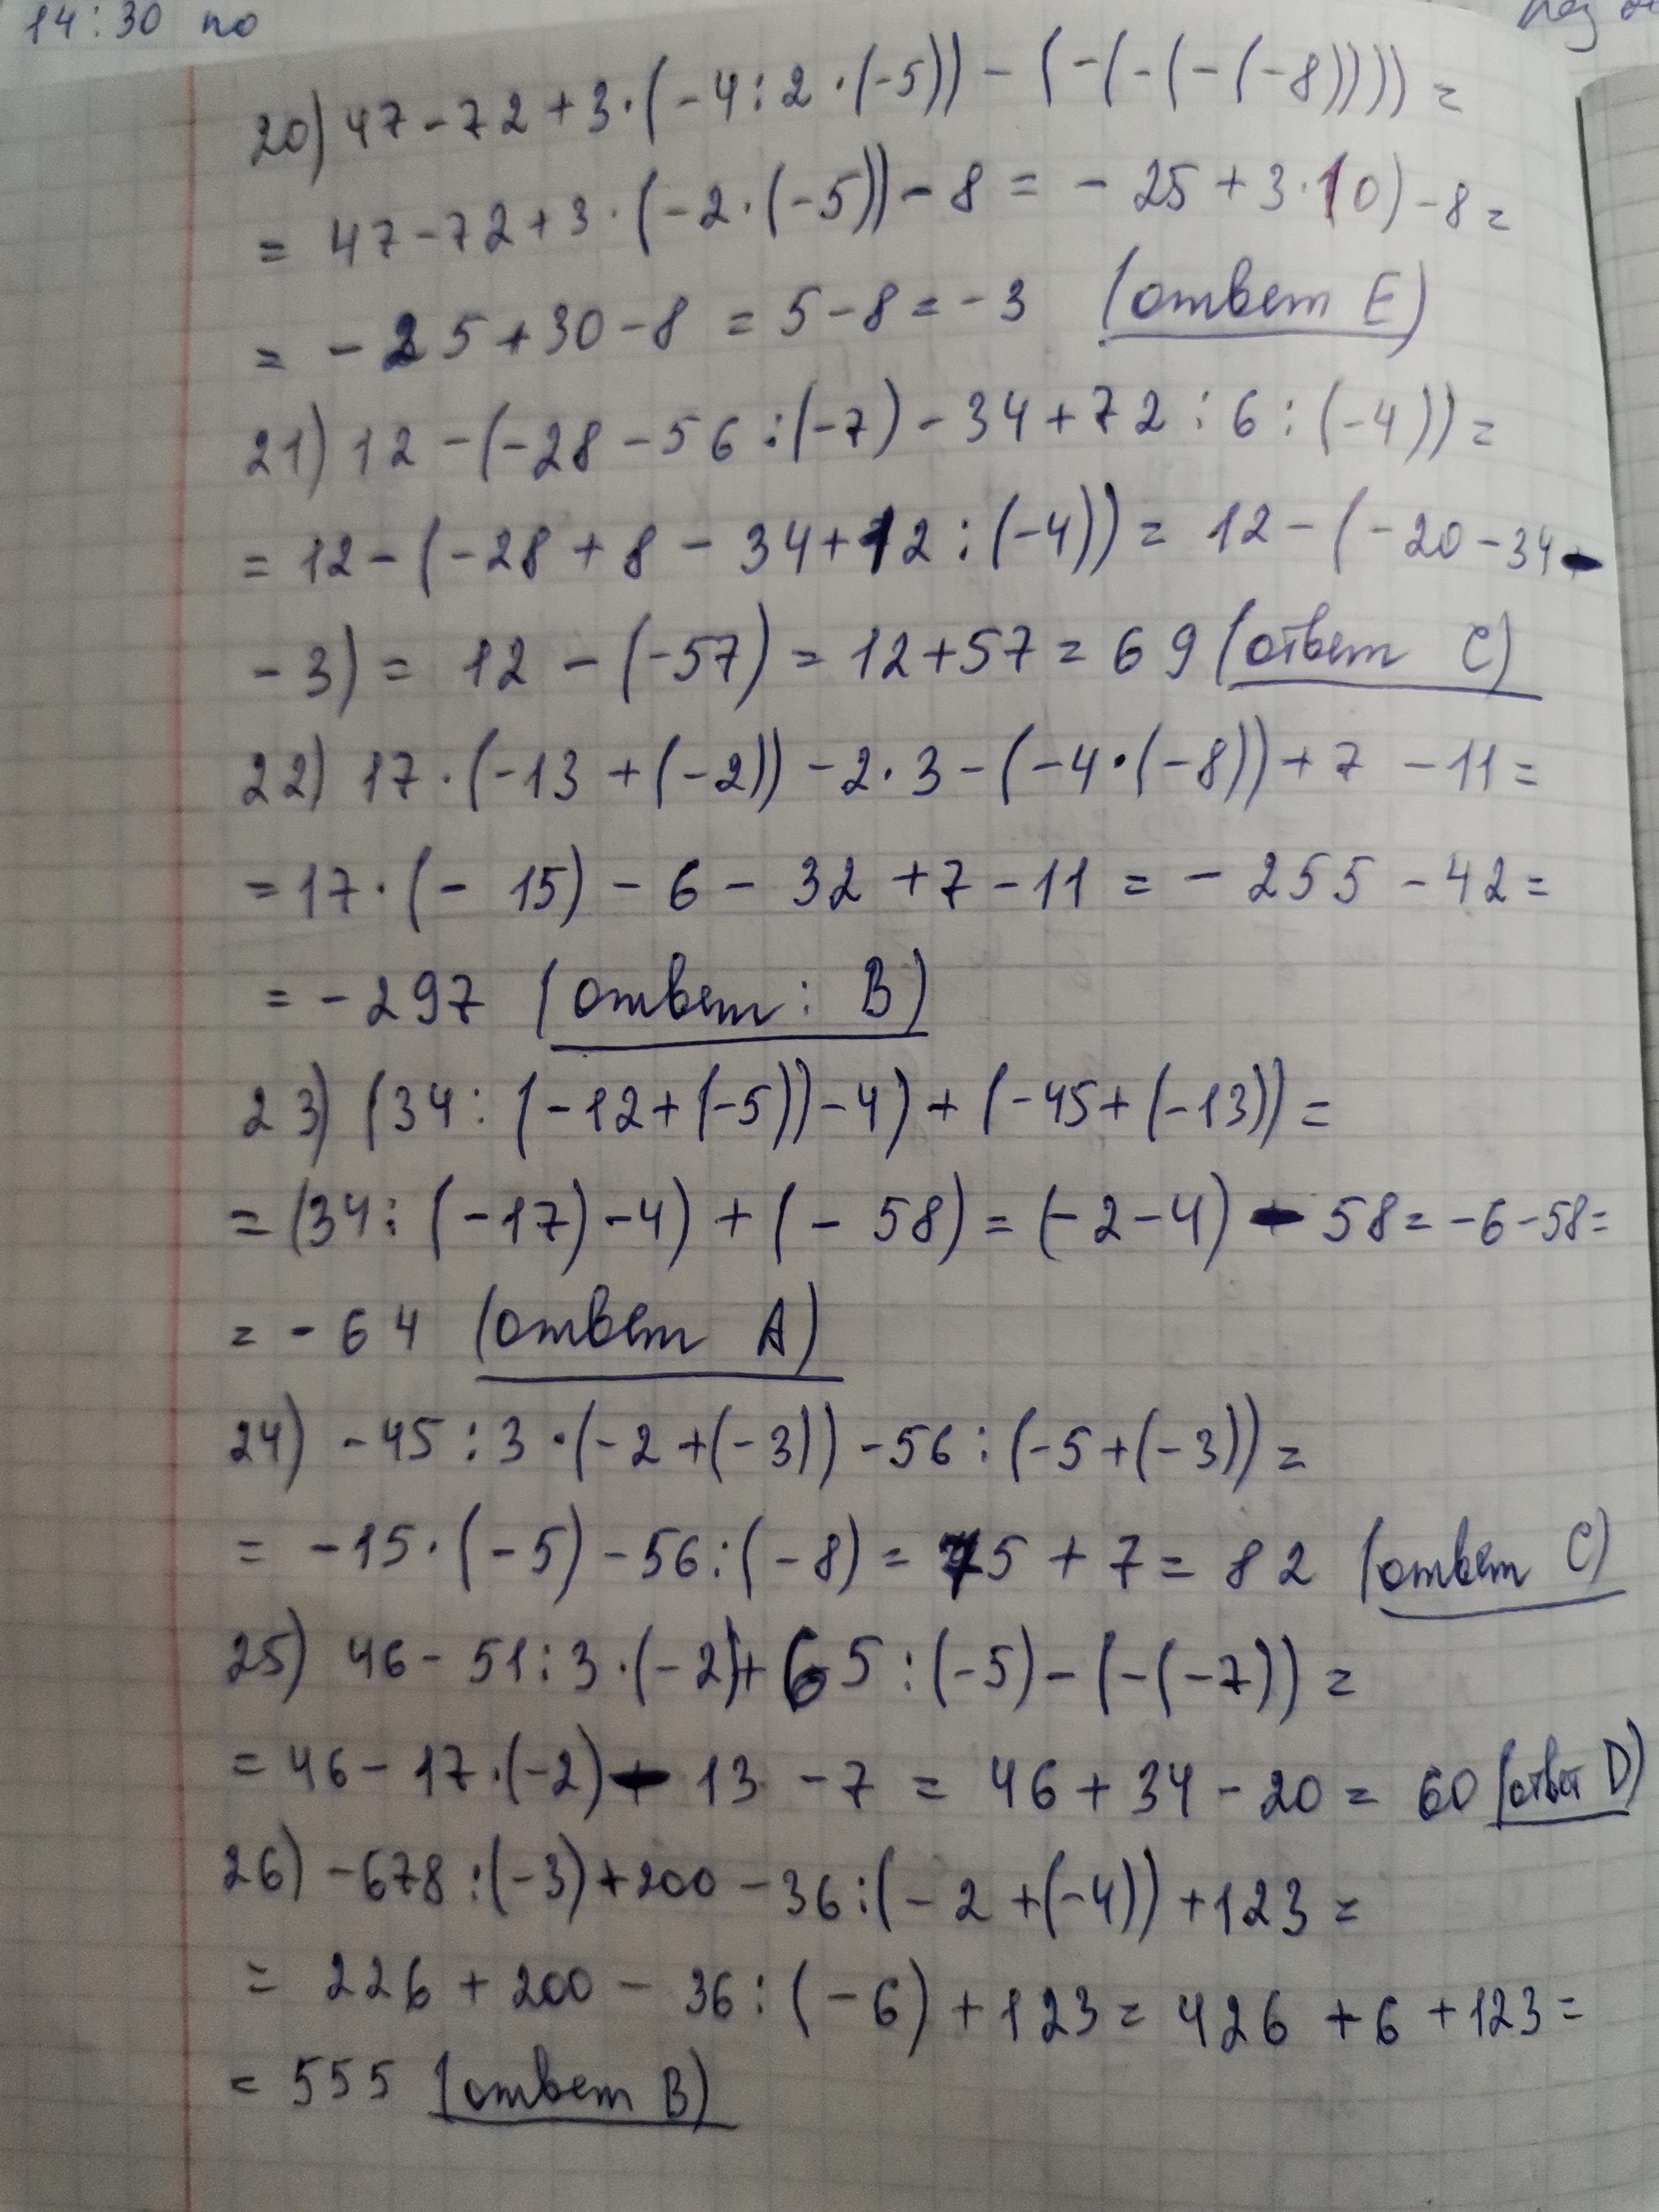 14:30 по
20) 47-72+3·(-4:2·(-5))-(-(-(-(-8))))=
= 47-72+3·(-2·(-5))-8 = -25+3·10)-8=
= -25+30-8 = 5-8=-3 (ответ E)
21) 12-(-28-56:(-7)-34+72:6:(-4))=
= 12-(-28+8-34+12:(-4))= 12-(-20-34-
-3)= 12-(-57)=12+57=69 (ответ C)
22) 17·(-13+(-2))-2·3-(-4·(-8))+7-11=
=17·(-15)-6-32+7-11=-255-42=
=-297 (ответ: B)
23) (34:(-12+(-5))-4)+(-45+(-13))=
=(34:(-17)-4)+(-58)=(-2-4)-58=-6-58=
=-64 (ответ A)
24) -45:3·(-2+(-3))-56:(-5+(-3))=
= -15·(-5)-56:(-8)=75+7=82 (ответ C)
25) 46-51:3·(-2)+65:(-5)-(-(-7))=
=46-17·(-2)-13-7=46+34-20=60 (ответ D)
26) -678:(-3)+200-36:(-2+(-4))+123=
= 226+200-36:(-6)+123=426+6+123=
=555 (ответ B)